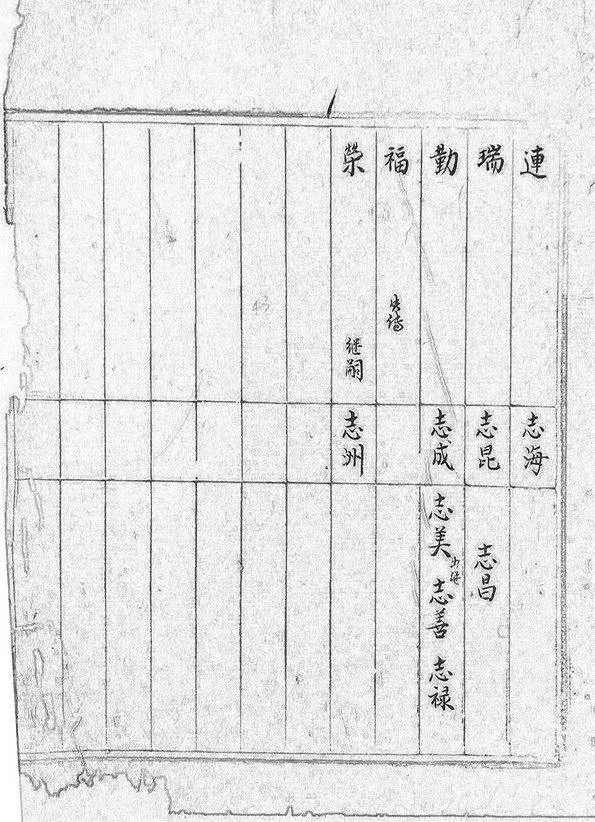 連 志海
瑞 志昆 志昌
勤 志成 志美 出继 志善 志禄
福 失传
荣 继嗣 志洲
43